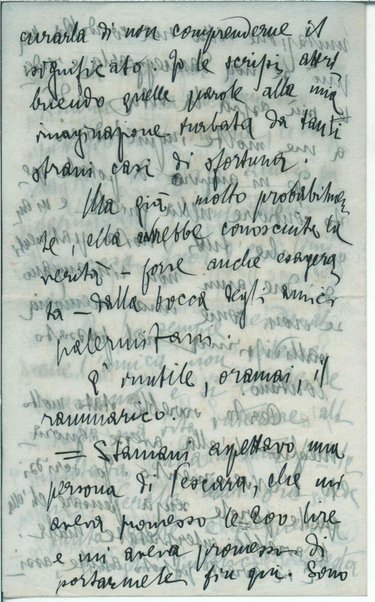 curarla di non comprenderne il
significato. Io le scrissi attri
buendo quelle parole alla mia
imaginazione turbata da tanti
strani casi di sfortuna.
Ma già, molto probabilmen
te, ella avrebbe conosciuta la
verità – forse anche esagera
ta – dalla bocca degli amici
palermitani.
È inutile, oramai, il
rammarico.
= Stamani aspettavo una
persona di Pescara, che mi
aveva promesso le 200 lire
e mi aveva promesso di
portarmele fin qui. Sono